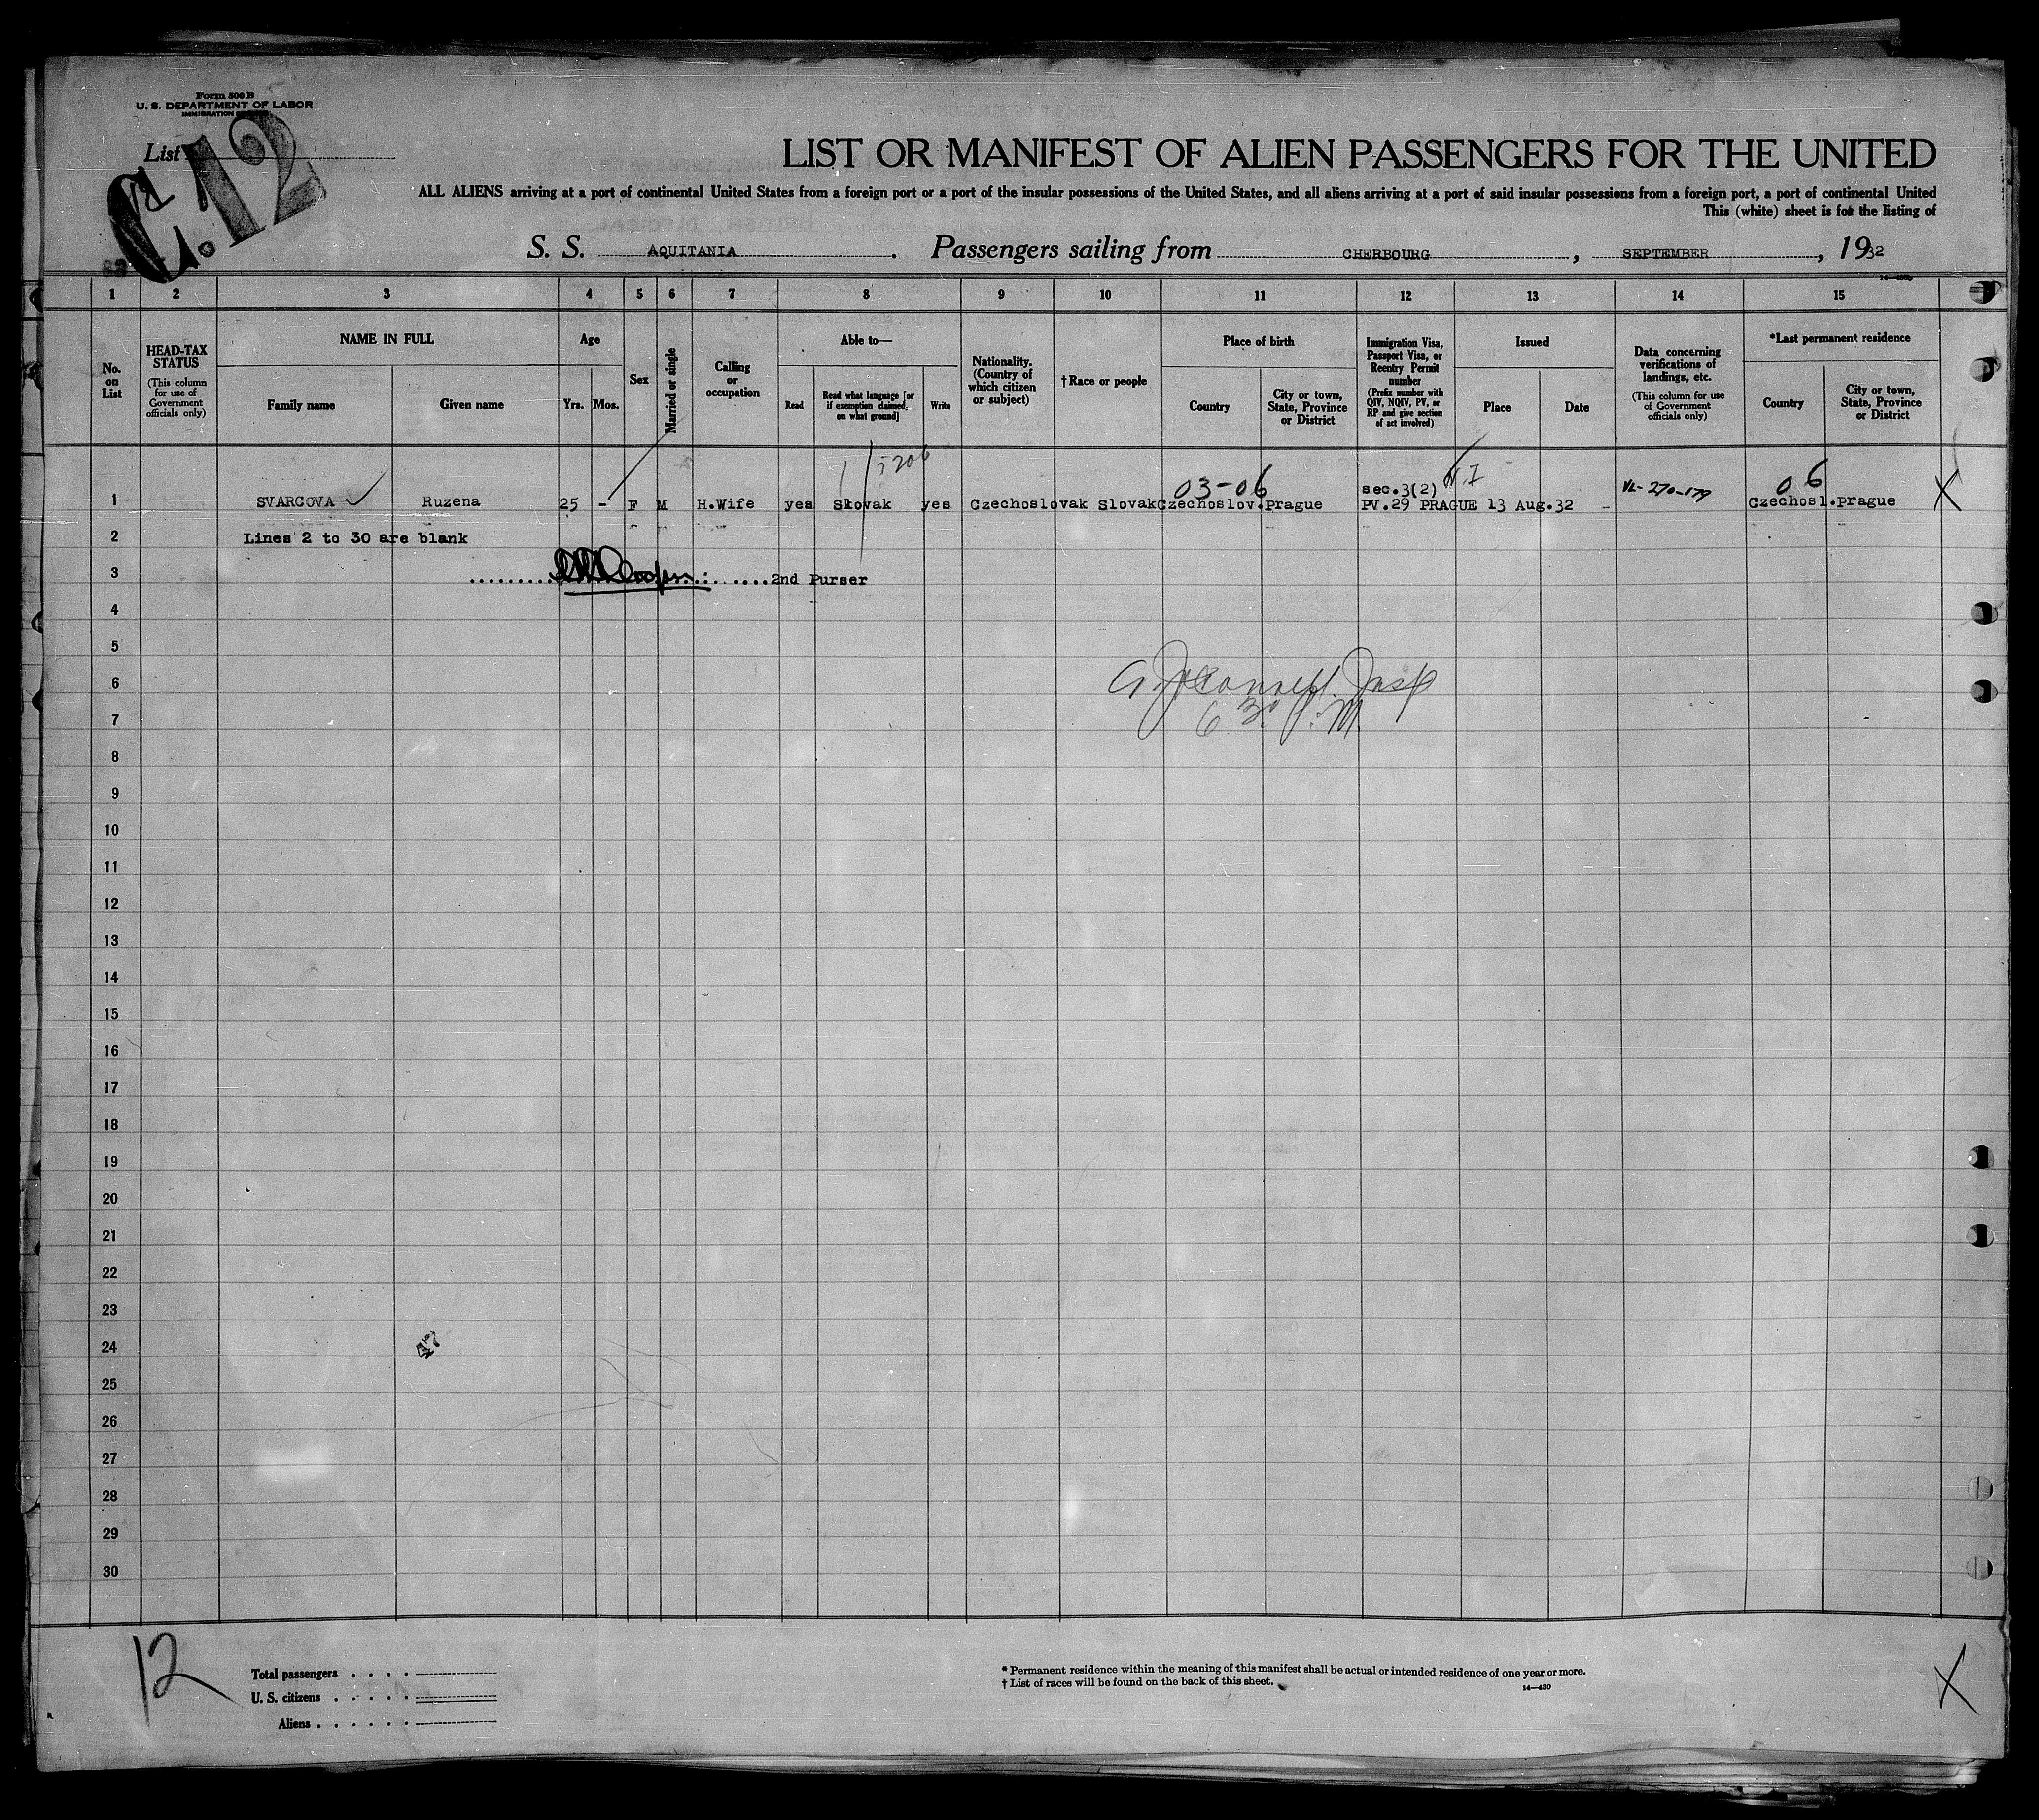 Form 500 B
U. S. DEPARTMENT OF LABOR
IMMIGRATION
List
C.12
LIST OR MANIFEST OF ALIEN PASSENGERS FOR THE UNITED
ALL ALIENS arriving at a port of continental United States from a foreign port or a port of the insular possessions of the United States, and all aliens arriving at a port of said insular possessions from a foreign port, a port of continental United
This (white) sheet is for the listing of
S. S. AQUITANIA. Passengers sailing from CHERBOURG, SEPTEMBER, 1932
1 2 3 4 5 6 7 8 9 10 11 12 13 14 15
No. on List
HEAD-TAX STATUS (This column for use of Government officials only)
NAME IN FULL
Family name Given name
Age
Yrs. Mos.
Sex
Married or single
Calling or occupation
Able to—
Read Read what language [or if exemption claimed, on what ground] Write
Nationality. (Country of which citizen or subject)
†Race or people
Place of birth
Country City or town, State, Province or District
Immigration Visa, Passport Visa, or Reentry Permit number (Prefix number with QIV, NQIV, PV, or RP and give section of act involved)
Issued
Place Date
Data concerning verifications of landings, etc. (This column for use of Government officials only)
*Last permanent residence
Country City or town, State, Province or District
5206
03-06 sec.3(2) 06
1 SVARCOVA Ruzena 25 - F M H.Wife yes Slovak yes Czechoslovak Slovak Czechoslov.Prague PV.29 PRAGUE 13 Aug.32 - VL-270-179 Czechosl.Prague X
2 Lines 2 to 30 are blank
3 2nd Purser
4
5
6
7
8
9
10
11
12
13
14
15
16
17
18
19
20
21
22
23
24
47
25
26
27
28
29
30
12
Total passengers . . . .
U. S. citizens . . . . .
Aliens . . . . . .
* Permanent residence within the meaning of this manifest shall be actual or intended residence of one year or more.
† List of races will be found on the back of this sheet.
14—430
X